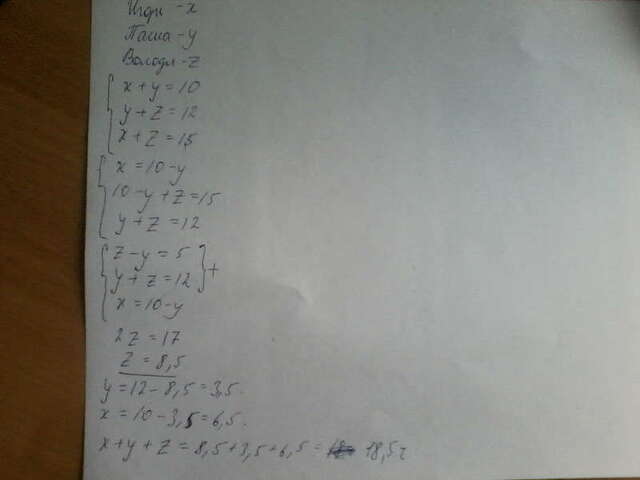 Игорь - x
Паша - y
Володя - z
x + y = 10
y + z = 12
x + z = 15
x = 10 - y
10 - y + z = 15
y + z = 12
z - y = 5
y + z = 12 } +
x = 10 - y
2z = 17
z = 8,5
y = 12 - 8,5 = 3,5.
x = 10 - 3,5 = 6,5.
x + y + z = 8,5 + 3,5 + 6,5 = 18,5